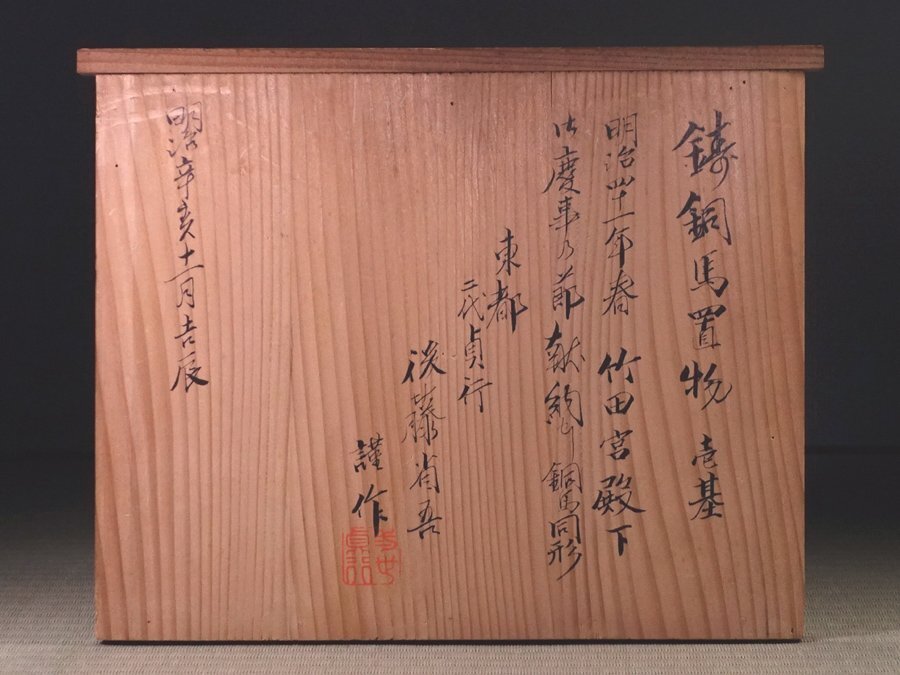 鋳銅馬置物 壱基
明治四十一年春 竹田宮殿下
御慶事乃節献納ノ銅馬同形
東都
二代貞行
後藤省吾
謹作
明治辛亥十一月吉辰
二世
貞行